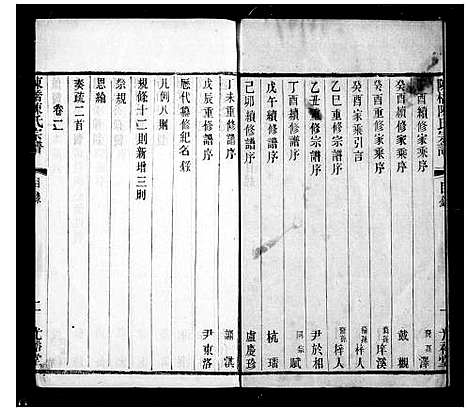 癸酉續修家乘序 裔孫澤
癸酉重修家乘序 戴觀
癸酉家乘引言 裔孫庠溪
乙巳重修宗譜序 裔孫梓人
乙丑重修宗譜序 尹於相
丁酉續修譜序 賦
戊午續修譜序 杭璠
己卯續修譜序 盧慶玢
丁未重修譜序 淇
戊辰重修譜序 尹東洛
歷代重修紀名錄
凡例八則
規條十二則新增三則
祭規
恩綸
奏疏二首
卷二
目錄